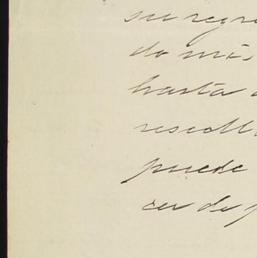 su regre
do mis
hasta
resol
puede
cer de p